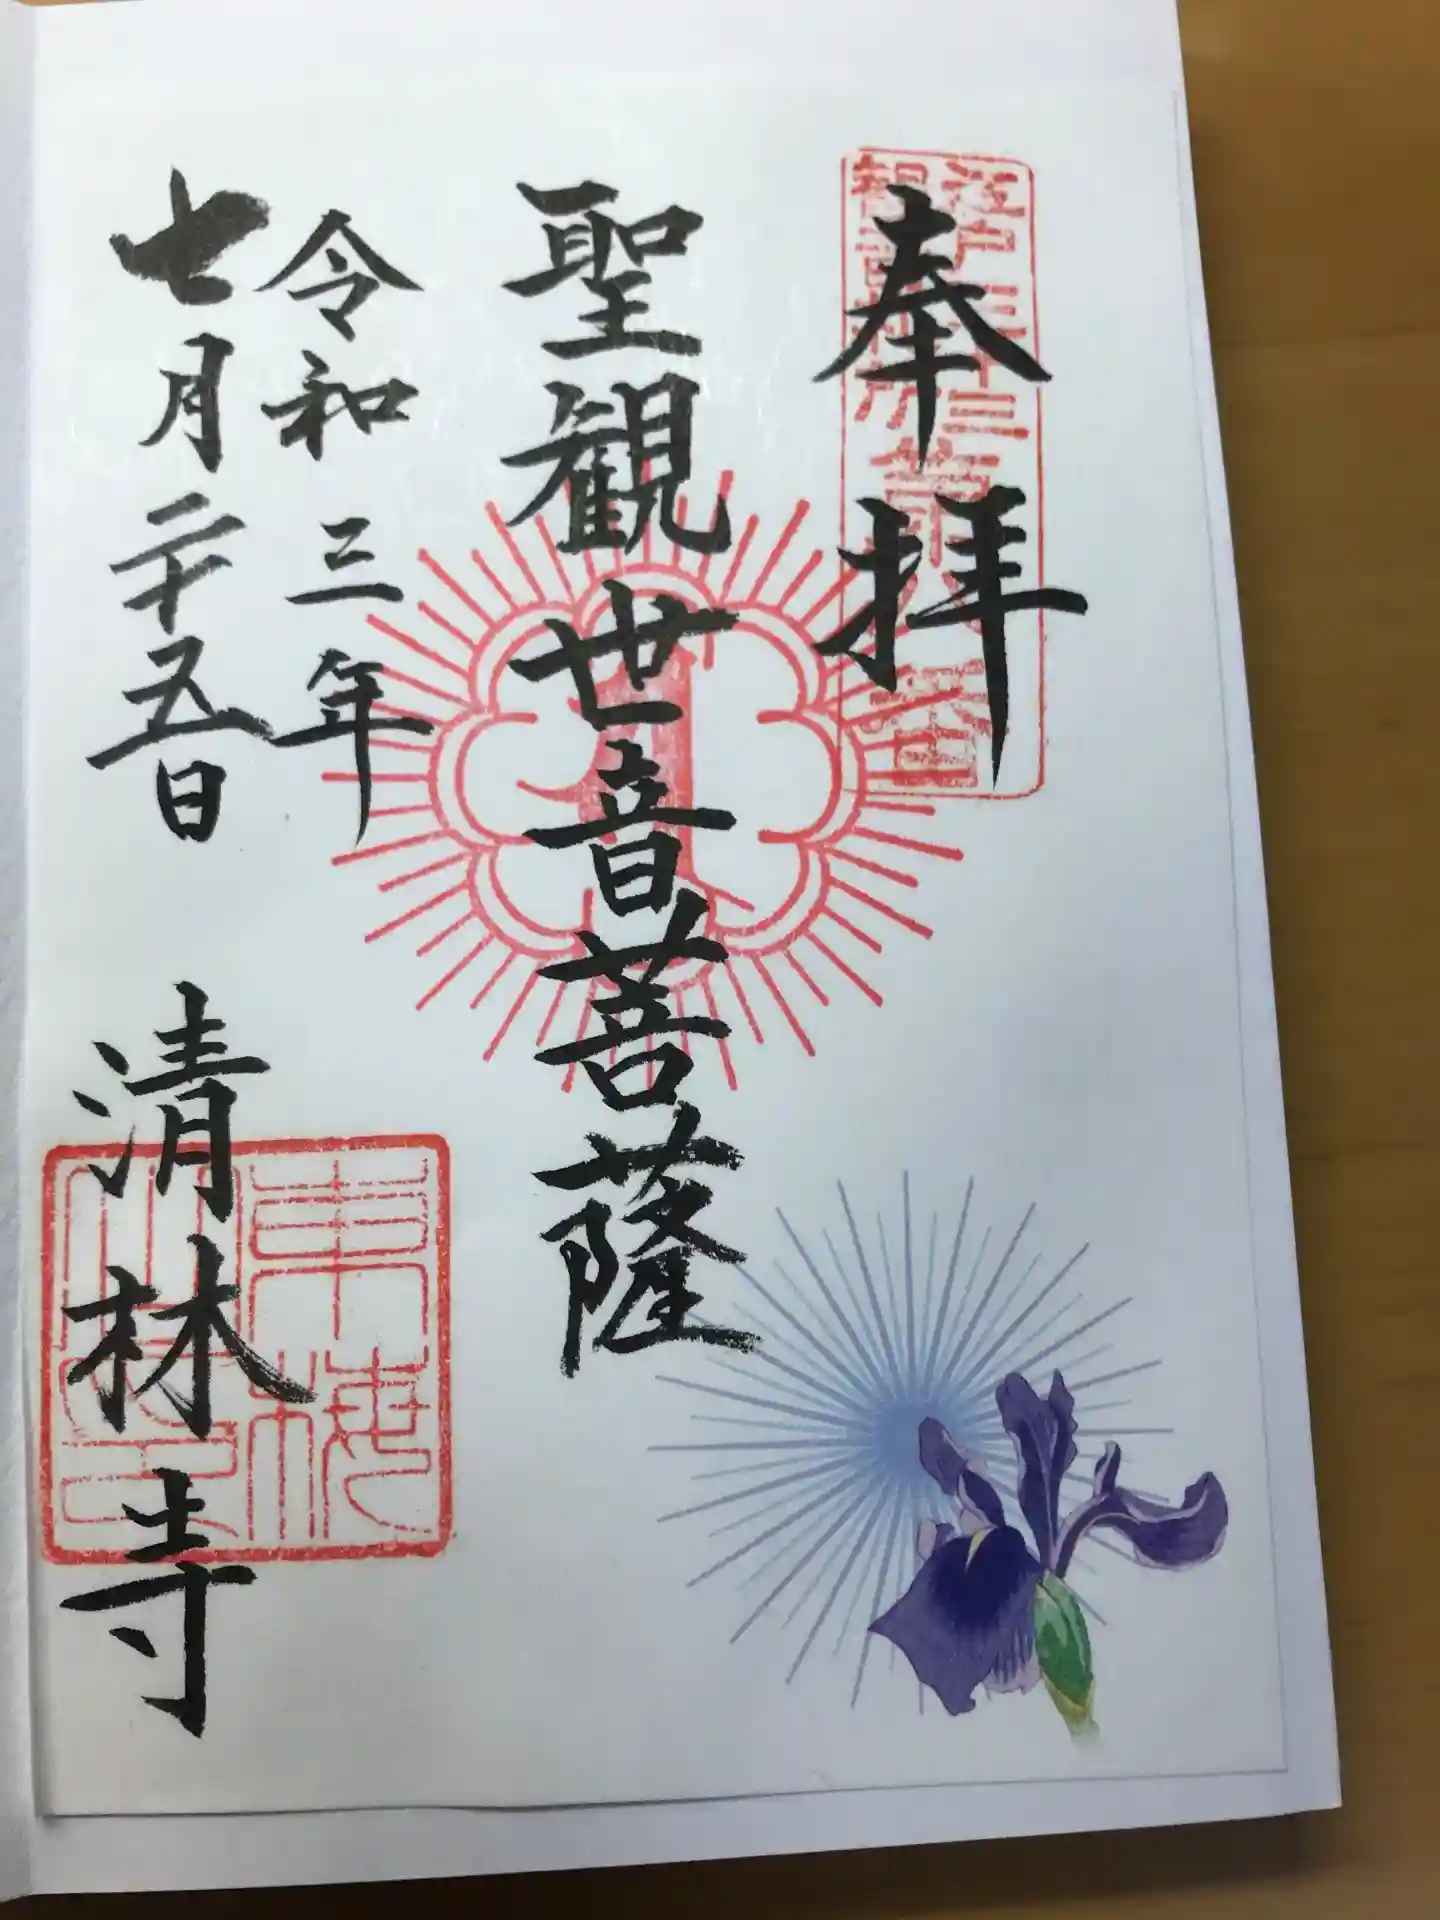 奉拝
江戸三十三
観音札所第八番
聖観世音菩薩
令和三年
七月二十五日
清林寺
東梅